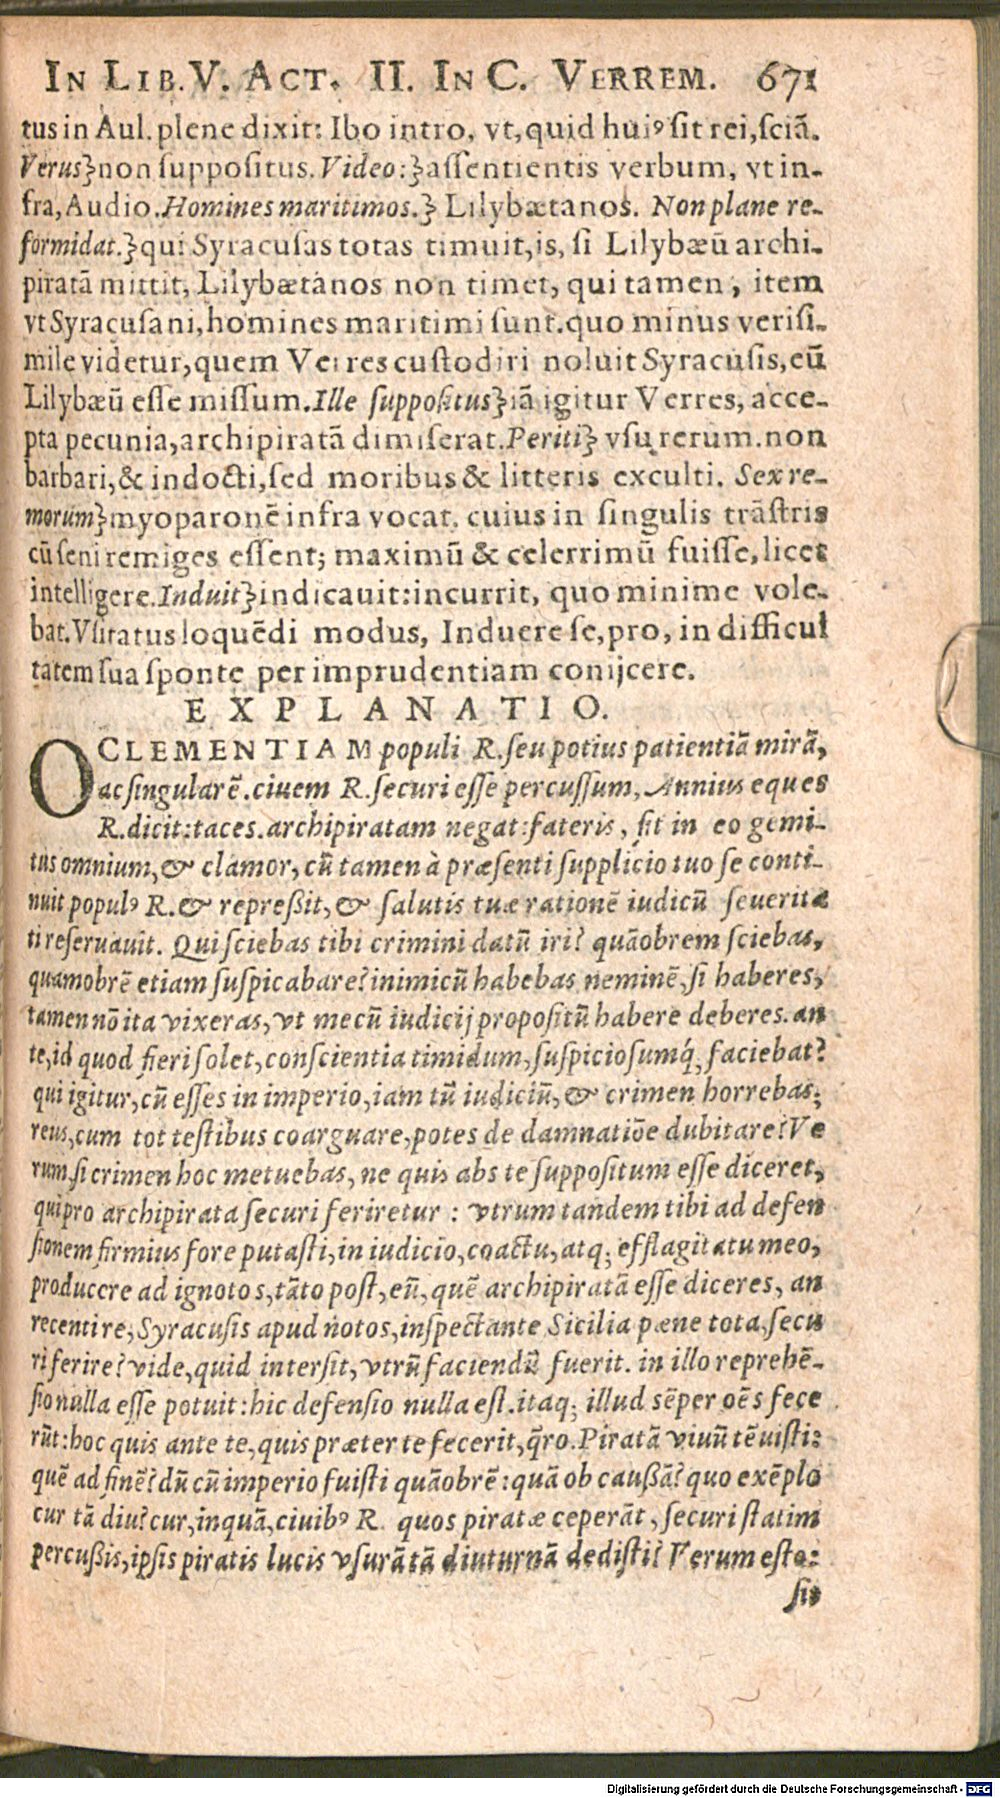 IN LIB. V. ACT. II. IN C. VERREM. 671
tus in Aul. plene dixit: Ibo intro, vt, quid huiꝰ sit rei, sciã.
Verus} non suppositus. Video:} assentientis verbum, vt in-
fra, Audio. Homines maritimos.} Lilybætanos. Non plane re-
formidat.} qui Syracusas totas timuit, is, si Lilybæũ archi-
piratã mittit, Lilybætanos non timet, qui tamen, item
vt Syracusani, homines maritimi sunt. quo minus verisi-
mile videtur, quem Verres custodiri noluit Syracusis, eũ
Lilybæũ esse missum. Ille suppositus} iã igitur Verres, acce-
pta pecunia, archipiratã dimiserat. Periti} vsu rerum. non
barbari, & indocti, sed moribus & litteris exculti. Sex re-
morum} myoparonẽ infra vocat. cuius in singulis trãstris
cũ seni remiges essent; maximũ & celerrimũ fuisse, licet
intelligere. Induit} indicauit: incurrit, quo minime vole-
bat. Vsitatus loquẽdi modus, Induere se, pro, in difficul
tatem sua sponte per imprudentiam conijcere.
EXPLANATIO.
O CLEMENTIAM populi R. seu potius patientiã mirã,
ac singularẽ. ciuem R. securi esse percussum, Annius eques
R. dicit: taces. archipiratam negat: fateris, fit in eo gemi-
tus omnium, & clamor, cũ tamen à præsenti supplicio tuo se conti-
nuit populꝰ R. & repreßit, & salutis tuæ rationẽ iudicũ seueritа
ti reseruauit. Qui sciebas tibi crimini datũ iri? quãobrem sciebas,
quamobrẽ etiam suspicabare? inimicũ habebas neminẽ, si haberes,
tamen nõ ita vixeras, vt mecũ iudicij propositũ habere deberes. an
te, id quod fieri solet, conscientia timidum, suspiciosumq́; faciebat?
qui igitur, cũ esses in imperio, iam tũ iudiciũ, & crimen horrebas;
reus, cum tot testibus coarguare, potes de damnatiõe dubitare? Ve
rum, si crimen hoc metuebas, ne quis abs te suppositum esse diceret,
qui pro archipirata securi feriretur: vtrum tandem tibi ad defen
sionem firmius fore putasti, in iudicio, coactu, atq; efflagitatu meo,
producere ad ignotos, tãto post, eũ, quẽ archipiratã esse diceres, an
recenti re, Syracusis apud notos, inspectante Sicilia pæne tota, secu
ri ferire? vide, quid intersit, vtrũ faciendũ fuerit. in illo reprehẽ-
sio nulla esse potuit: hic defensio nulla est. itaq; illud sẽper oẽs fece
rũt: hoc quis ante te, quis præter te fecerit, q̃ro. Piratã viuũ tẽuisti:
quẽ ad finẽ? dũ cũ imperio fuisti quãobrẽ: quã ob caußã? quo exẽplo
cur tã diu? cur, inquã, ciuibꝰ R. quos piratæ ceperãt, securi statim
percußis, ipsis piratis lucis vsurãtã diuturnã dedisti? Verum esto:
sit
Digitalisierung gefördert durch die Deutsche Forschungsgemeinschaft - DFG